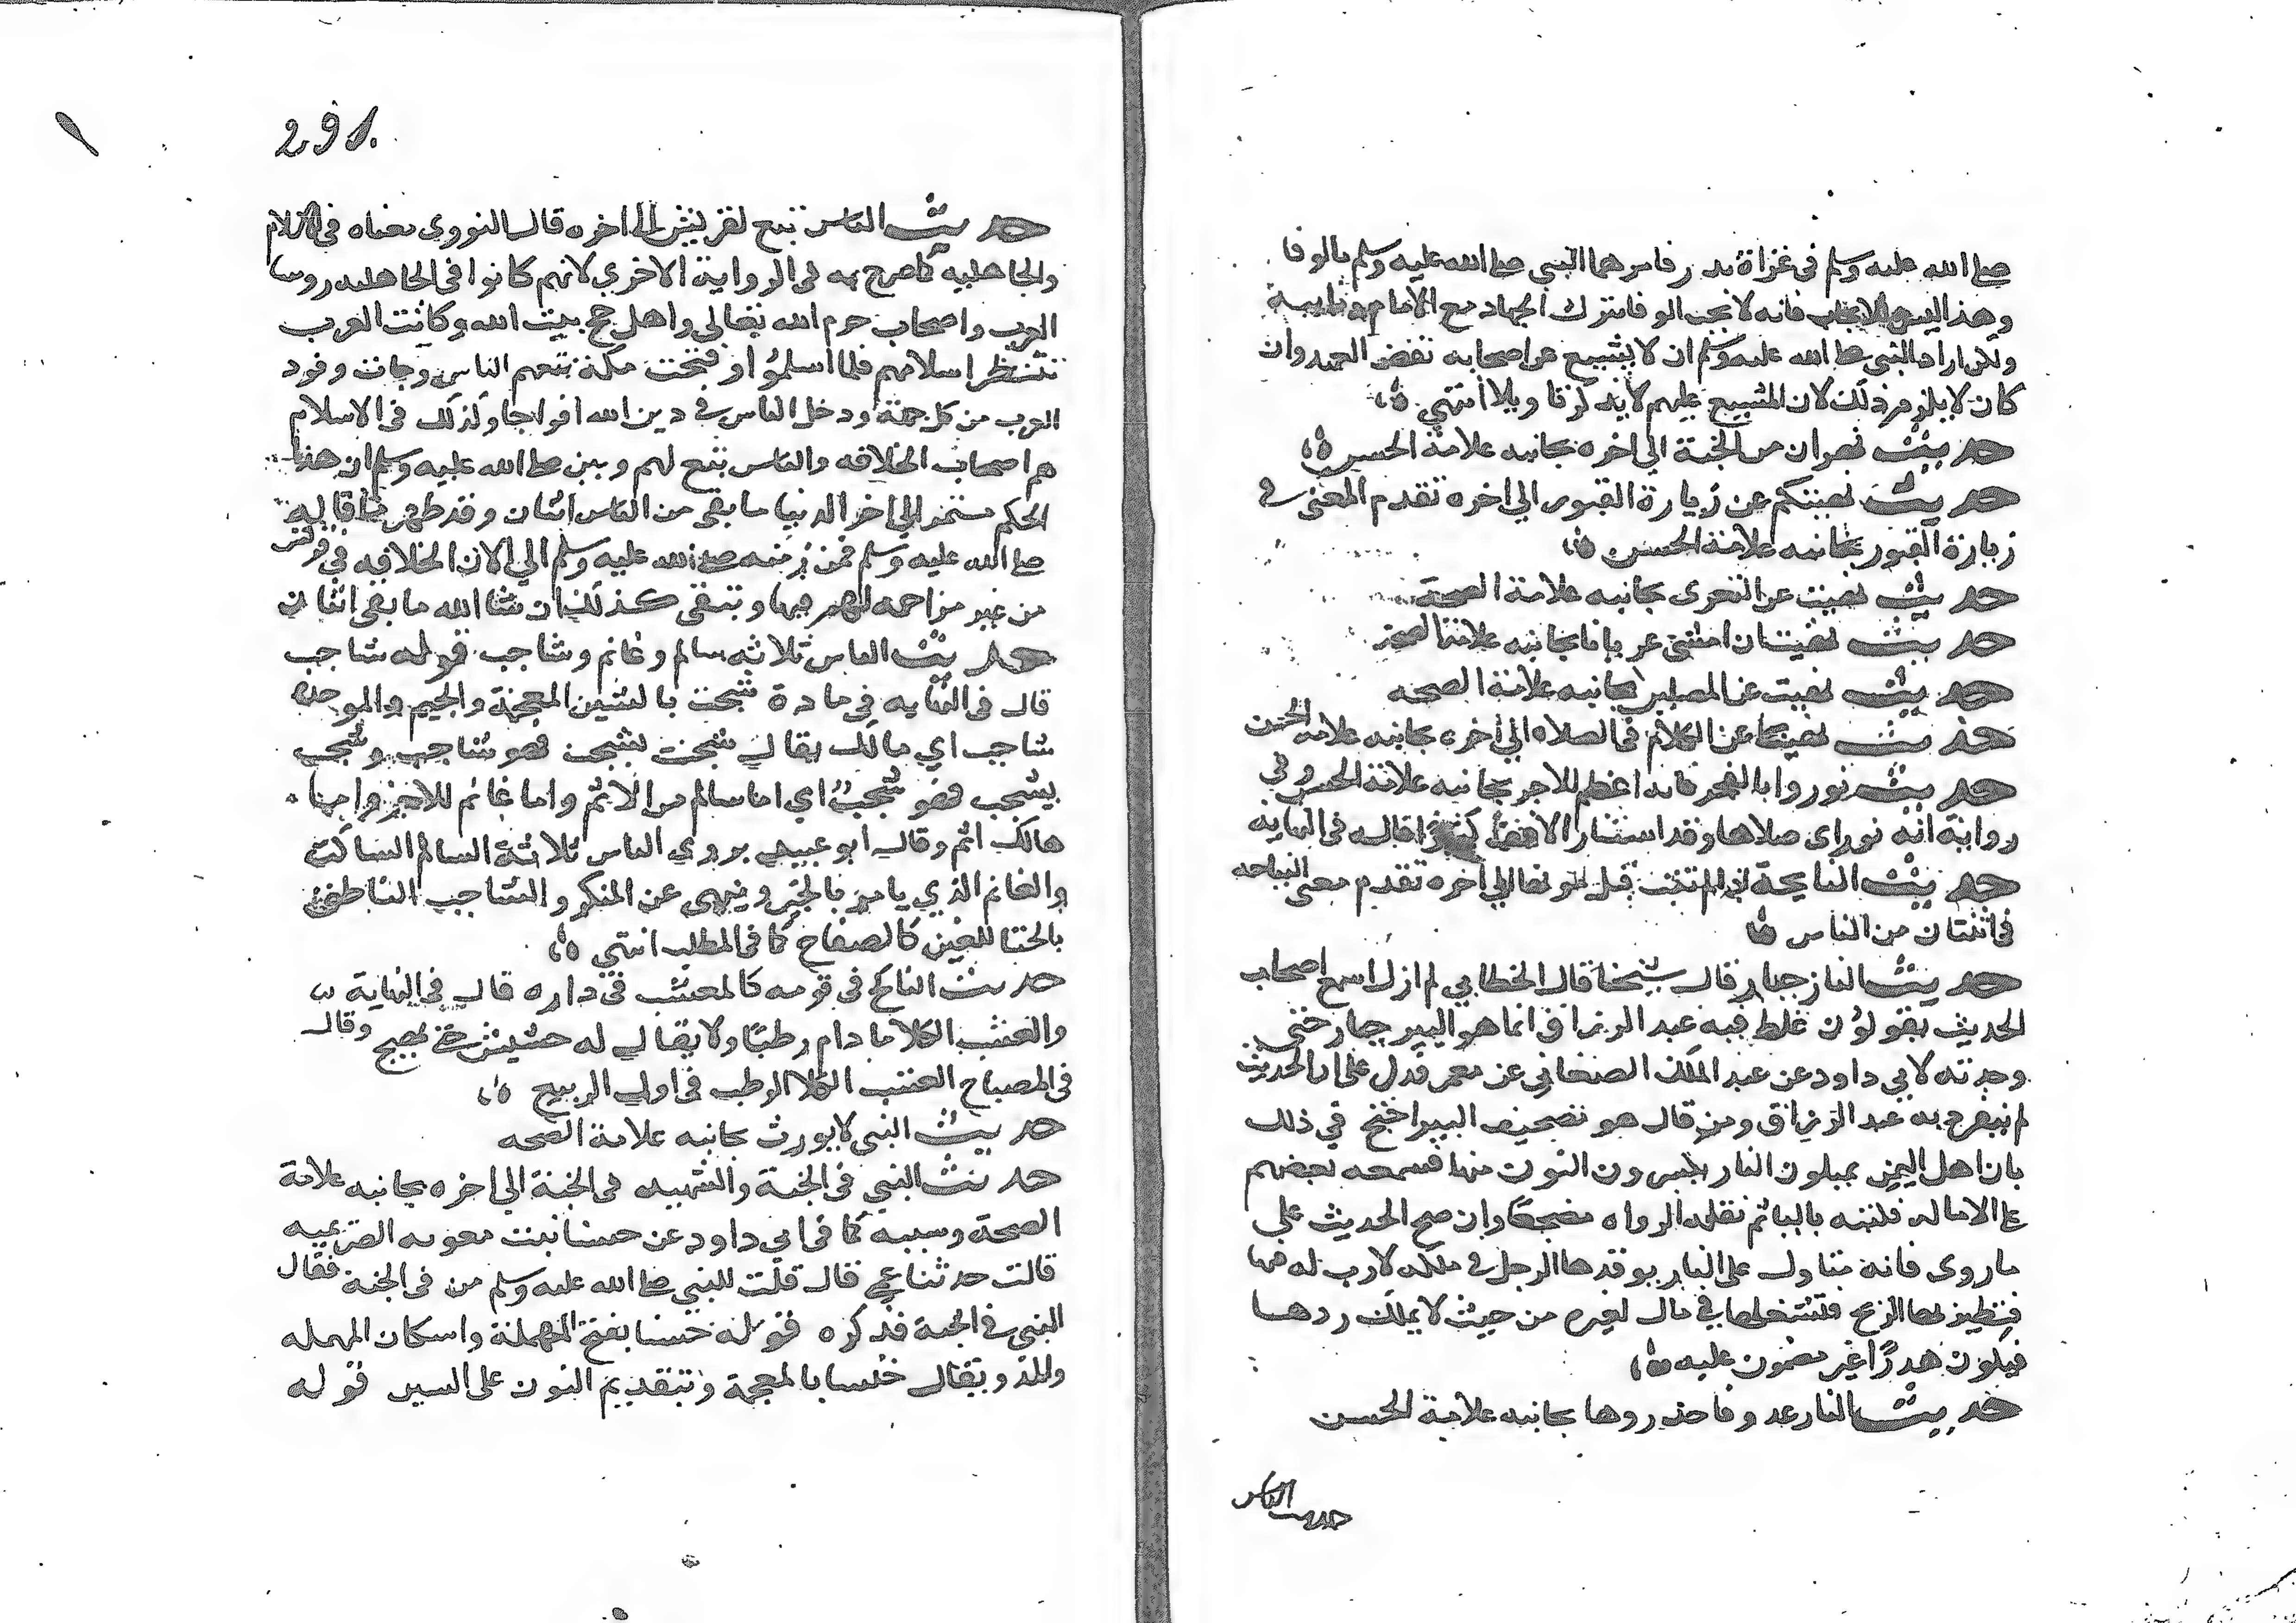 صلى الله عليه وسلم في غزاة بدر فامرهما النبي صلى الله عليه وسلم بالوفا
وهذا ليس للايجاب فانه لا يجب الوفا بترك الجهاد مع الامام ونايبه
ولكن اراد النبي صلى الله عليه وسلم ان لا يشيع عن اصحابه نقض العهد وان
كان لا يلزم ذلك لان المشيع عليهم لا يذكر تاويلا انتهى
حديث نهران من الجنة الى اخره بجانبه علامة الحسن
حديث نهيتكم عن زيارة القبور الى اخره تقدم المعنى في
زيارة القبور بجانبه علامة الحسن
حديث نهيت عن التعرى بجانبه علامة الصحة
حديث نهيت ان امشى عريانا بجانبه علامة الصحة
حديث نهيت عن المصلين بجانبه علامة الصحه
حديث نهينا عن الكلام في الصلاه الى اخره بجانبه علامة الحسن
حديث نوروا بالفجر فانه اعظم للاجر بجانبه علامة الحسن وفي
رواية انه نور اى صلاها وقد استنار الافق كثيرا قاله في النهايه
حديث النايحة اذا لم تتب قبل موتها الى اخره تقدم معنى النياحه
في اثنتان من الناس
حديث النار جبار قال شيخنا قال الخطابي لم ازل اسمع اصحاب
الحديث يقولون غلط فيه عبد الرزاق انما هو البير جبار حتى
وجدته لابي داود عن عبد الملك الصنعاني عن معمر فدل على ان الحديث
لم ينفرد به عبد الرزاق ومن قال هو تصحيف البير احتج في ذلك
بان اهل اليمن يميلون النار يكسرون النون منها فسمعه بعضهم
على الاماله فكتبه باليا ثم نقله الرواه مصحفا وان صح الحديث على
ما روى فانه متاول على النار يوقدها الرجل في ملكه لارب له فيها
فتطير بها الريح فتشعلها في مال لغيره من حيث لا يملك ردها
فيكون هدرًا غير مضمون عليه
حديث النار عدو فاحذروها بجانبه علامة الحسن
حديث الناس
291
حديث الناس تبع لقريش الى اخره قال النووى معناه في الاسلام
والجاهليه كما صرح به في الرواية الاخري لانهم كانوا في الجاهليه روسا
العرب واصحاب حرم الله تعالى واهل حج بيت الله وكانت العرب
تنتظر اسلامهم فلما اسلموا وفتحت مكة تبعهم الناس وجات وفود
العرب من كل جهة ودخل الناس في دين الله افواجا وكذلك في الاسلام
هم اصحاب الخلافه والناس تبع لهم وبين صلى الله عليه وسلم ان هذا
الحكم مستمر الي اخر الدنيا ما بقى من الناس اثنان وقد ظهر ما قاله
صلى الله عليه وسلم فمن زمنه صلى الله عليه وسلم الي الان الخلافه في قريش
من غير مزاحمه لهم فيها وتبقى كذلك ان شا الله ما بقى اثنان
حديث الناس ثلاثه سالم وغانم وشاجب قوله شاجب
قال في النهايه في مادة شجب بالشين المعجمة والجيم والموحده
شاجب اي هالك يقال شجب يشجب فهو شاجب وشجب
يشجب فهو شجب اي اما سالم من الاثم واما غانم للاجر واما
هالك اثم وقال ابو عبيد يروى الناس ثلاثة السالم الساكت
والغانم الذي يامر بالخير وينهى عن المنكر والشاجب الناطق
بالخنا المعين كالصفاح كما في المطلب انتهى
حديث الناكح في قومه كالمعشب في داره قال في النهاية
والعشب الكلا ما دام رطبًا ولا يقال له حشيش حتى يهيج وقال
في المصباح العشب الكلا الرطب في اول الربيع
حديث النبي لا يورث بجانبه علامة الصحه
حديث النبي في الجنة والشهيد في الجنة الى اخره بجانبه علامة
الصحة وسببه كما في ابي داود عن حسنا بنت معويه الصريميه
قالت حدثنا عمي قال قلت للنبي صلى الله عليه وسلم من في الجنة فقال
النبي في الجنة فذكره قوله حسنا بفتح المهملة واسكان المهمله
والمد ويقال خنسا بالمعجمة وتقديم النون على السين قوله